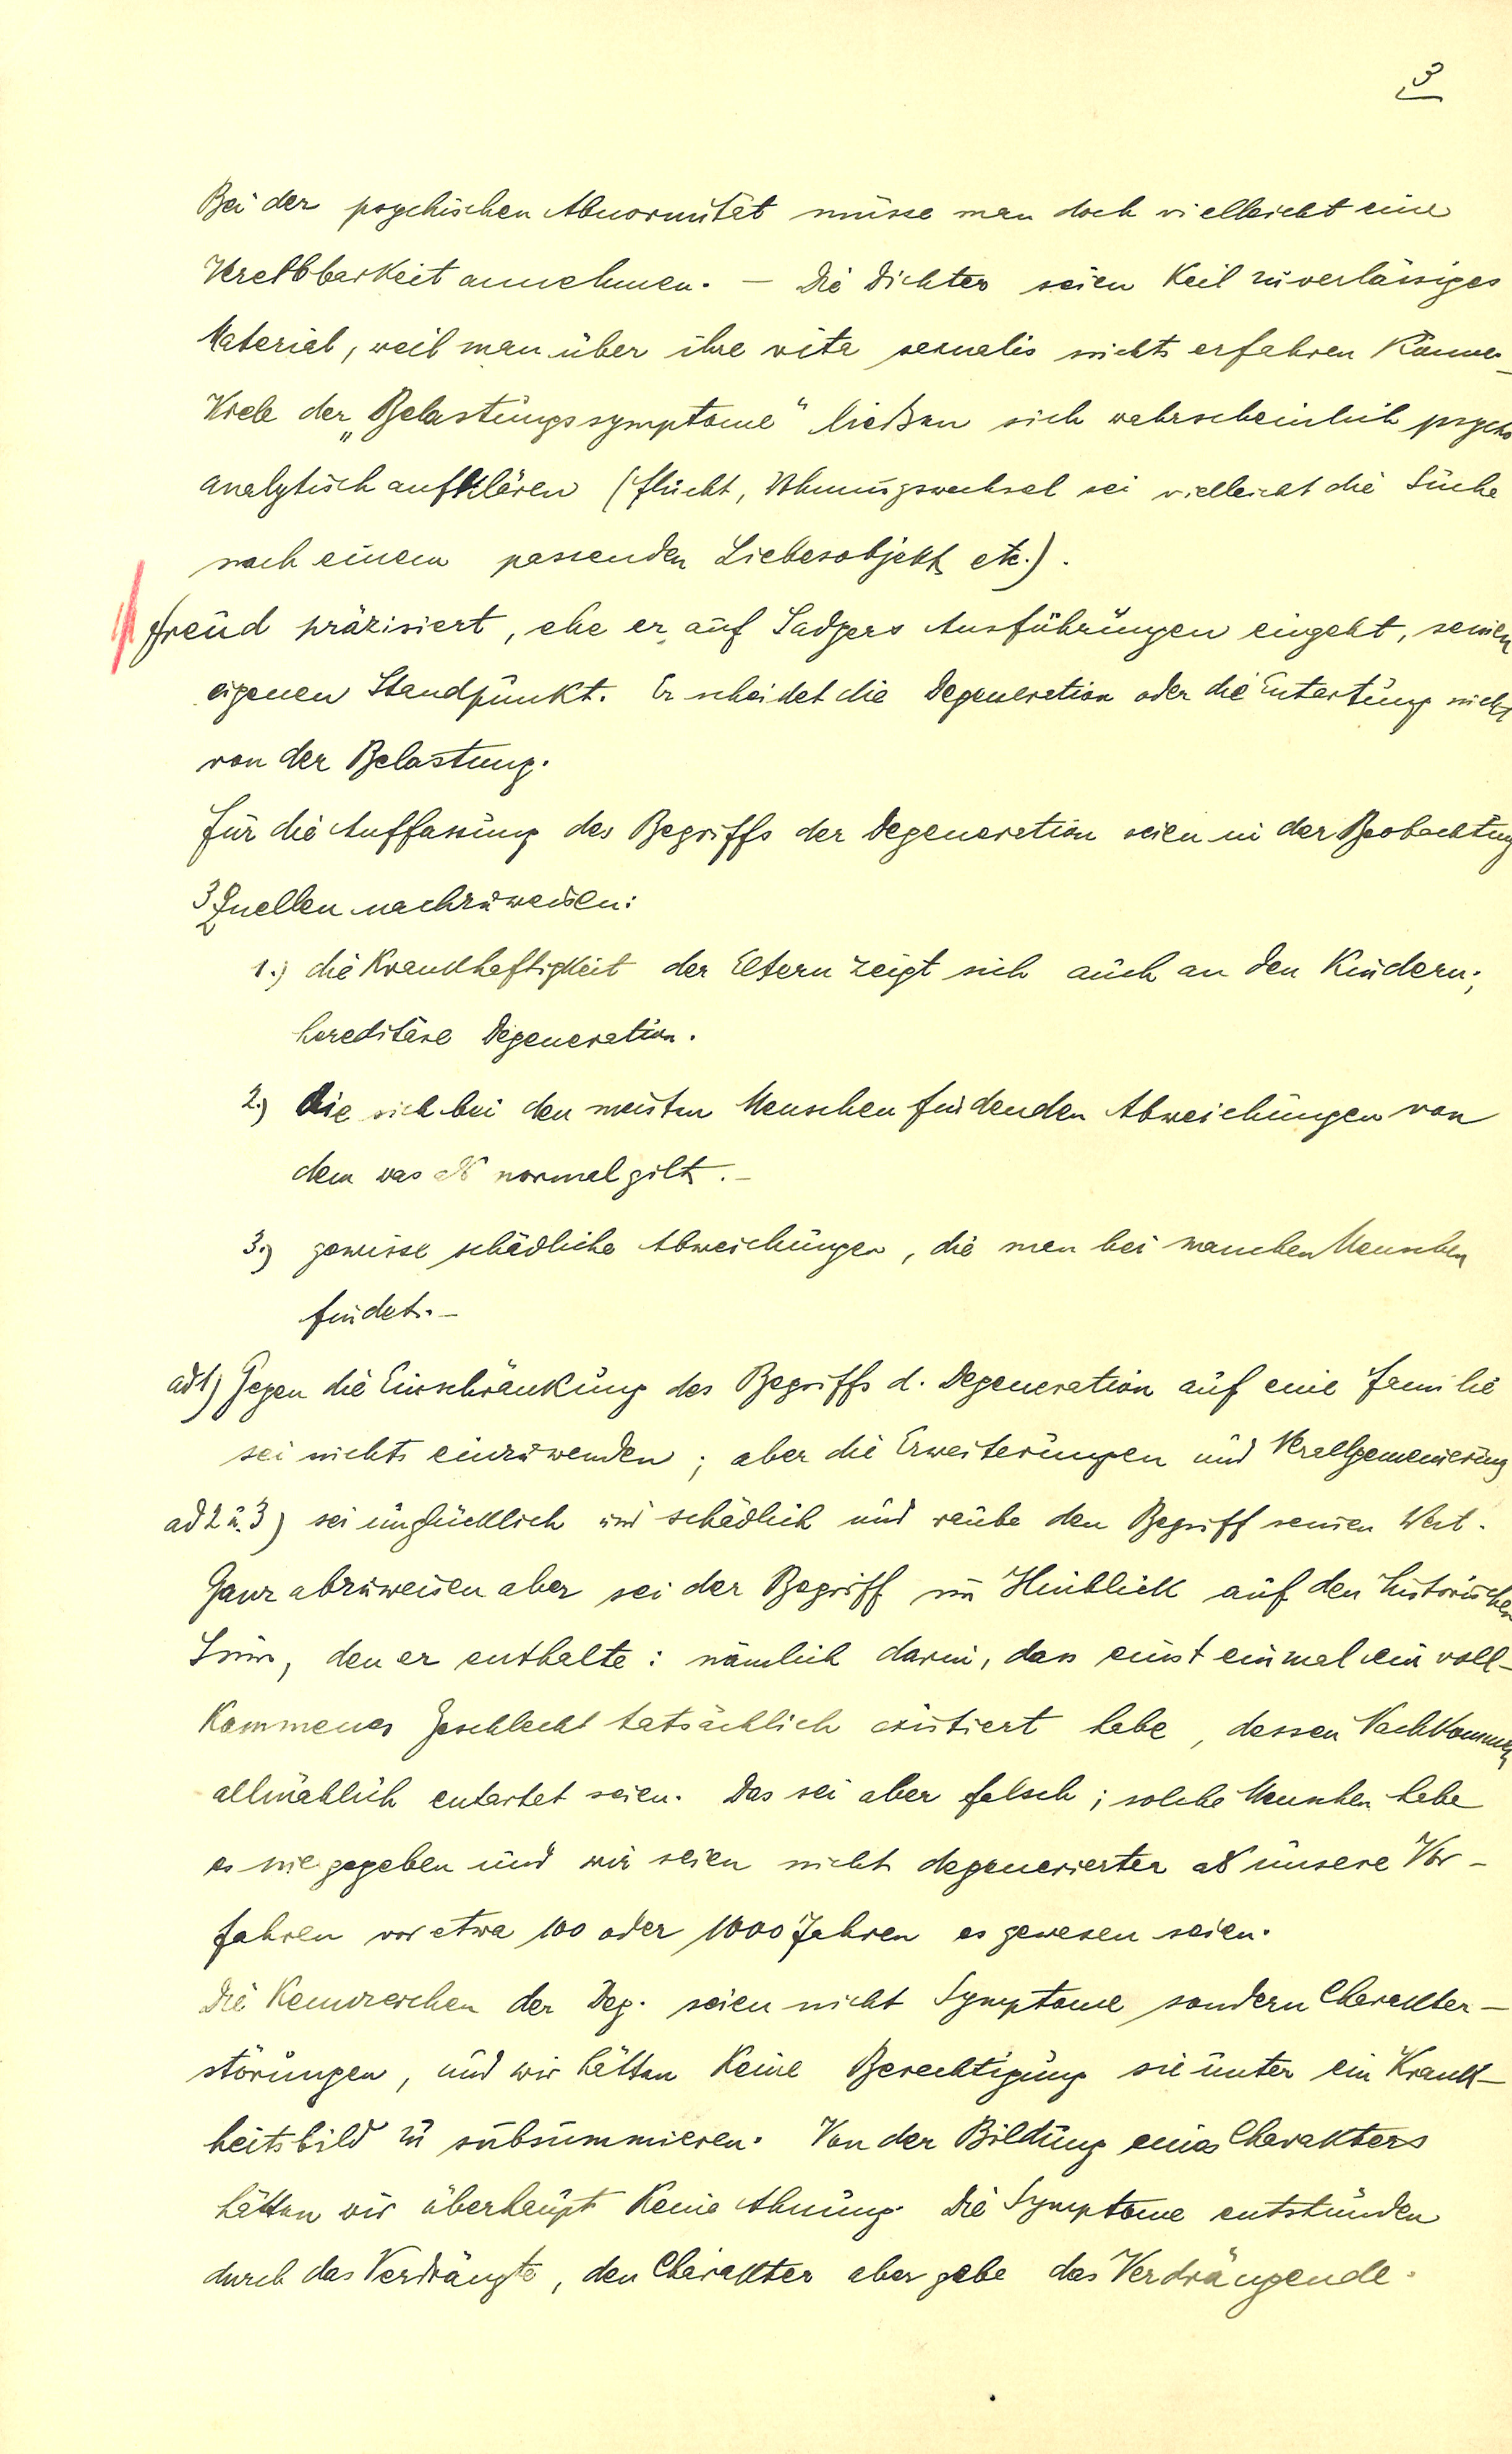 3
Bei der psychischen Abnormität müsse man doch vielleicht eine
Vererbbarkeit annehmen. – Die Dichter seien kein zuverlässiges
Material, weil man über ihre vita sexualis nichts erfahren könne.
Viele der „Belastungssymptome“ ließen sich wahrscheinlich psycho
analytisch aufklären (Flucht, Wohnungswechsel sei vielleicht die Suche
nach einem passenden Liebesobjekt etc.).
Freud präzisiert, ehe er auf Sadgers Ausführungen eingeht, seinen
eigenen Standpunkt. Er scheidet die Degeneration oder die Entartung nicht
von der Belastung.
Für die Auffassung des Begriffs der Degeneration seien in der Beobachtung
3 Quellen nachzuweisen:
1.) die Krankhaftigkeit der Eltern zeigt sich auch an den Kindern;
hereditäre Degeneration.
2.) Die sich bei den meisten Menschen findenden Abweichungen von
dem was als normal gilt. –
3.) gewisse schädliche Abweichungen, die man bei manchen Menschen
findet. –
ad 1) Gegen die Einschränkung des Begriffs d. Degeneration auf eine Familie
sei nichts einzuwenden; aber die Erweiterungen und Verallgemeinerung
ad 2 u. 3) sei unglücklich und schädlich und raube den Begriff seinen Wert.
Ganz abzuweisen aber sei der Begriff im Hinblick auf den historischen
Sinn, den er enthalte: nämlich darin, dass einst einmal ein voll-
kommenes Geschlecht tatsächlich existiert habe, dessen Nachkommen
allmählich entartet seien. Das sei aber falsch; solche Menschen habe
es nie gegeben und wir seien nicht degenerierter als unsere Vor-
fahren vor etwa 100 oder 1000 Jahren es gewesen seien.
Die Kennzeichen der Deg. seien nicht Symptome sondern Charakter-
störungen, und wir hätten keine Berechtigung sie unter ein Krank-
heitsbild zu subsummieren. Von der Bildung eines Charakters
hätten wir überhaupt keine Ahnung. Die Symptome entstünden
durch das Verdrängte, den Charakter aber gebe das Verdrängende.